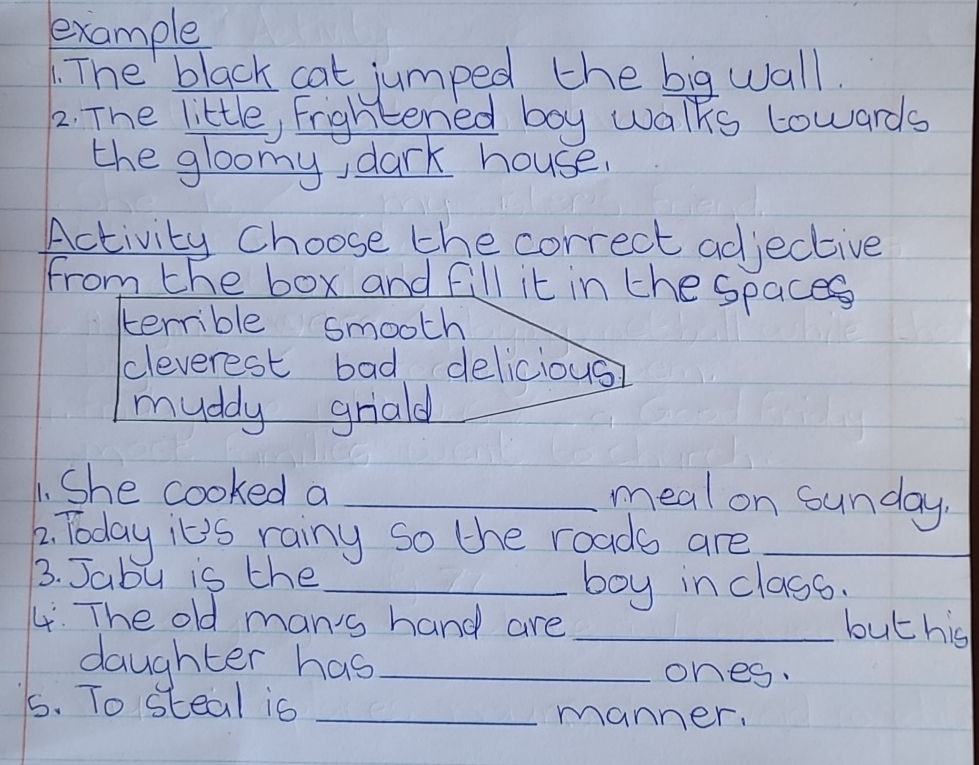 example
1. The black cat jumped the big wall.
2. The little, frightened boy walks towards
the gloomy, dark house.
Activity Choose the correct adjective
from the box and fill it in the spaces
terrible smooth
cleverest bad delicious
muddy griald
1. She cooked a ____________ meal on Sunday.
2. Today it's rainy so the roads are ____________
3. Jabu is the ____________ boy in class.
4. The old man's hand are ____________ but his
daughter has ____________ ones.
5. To steal is ____________ manner.